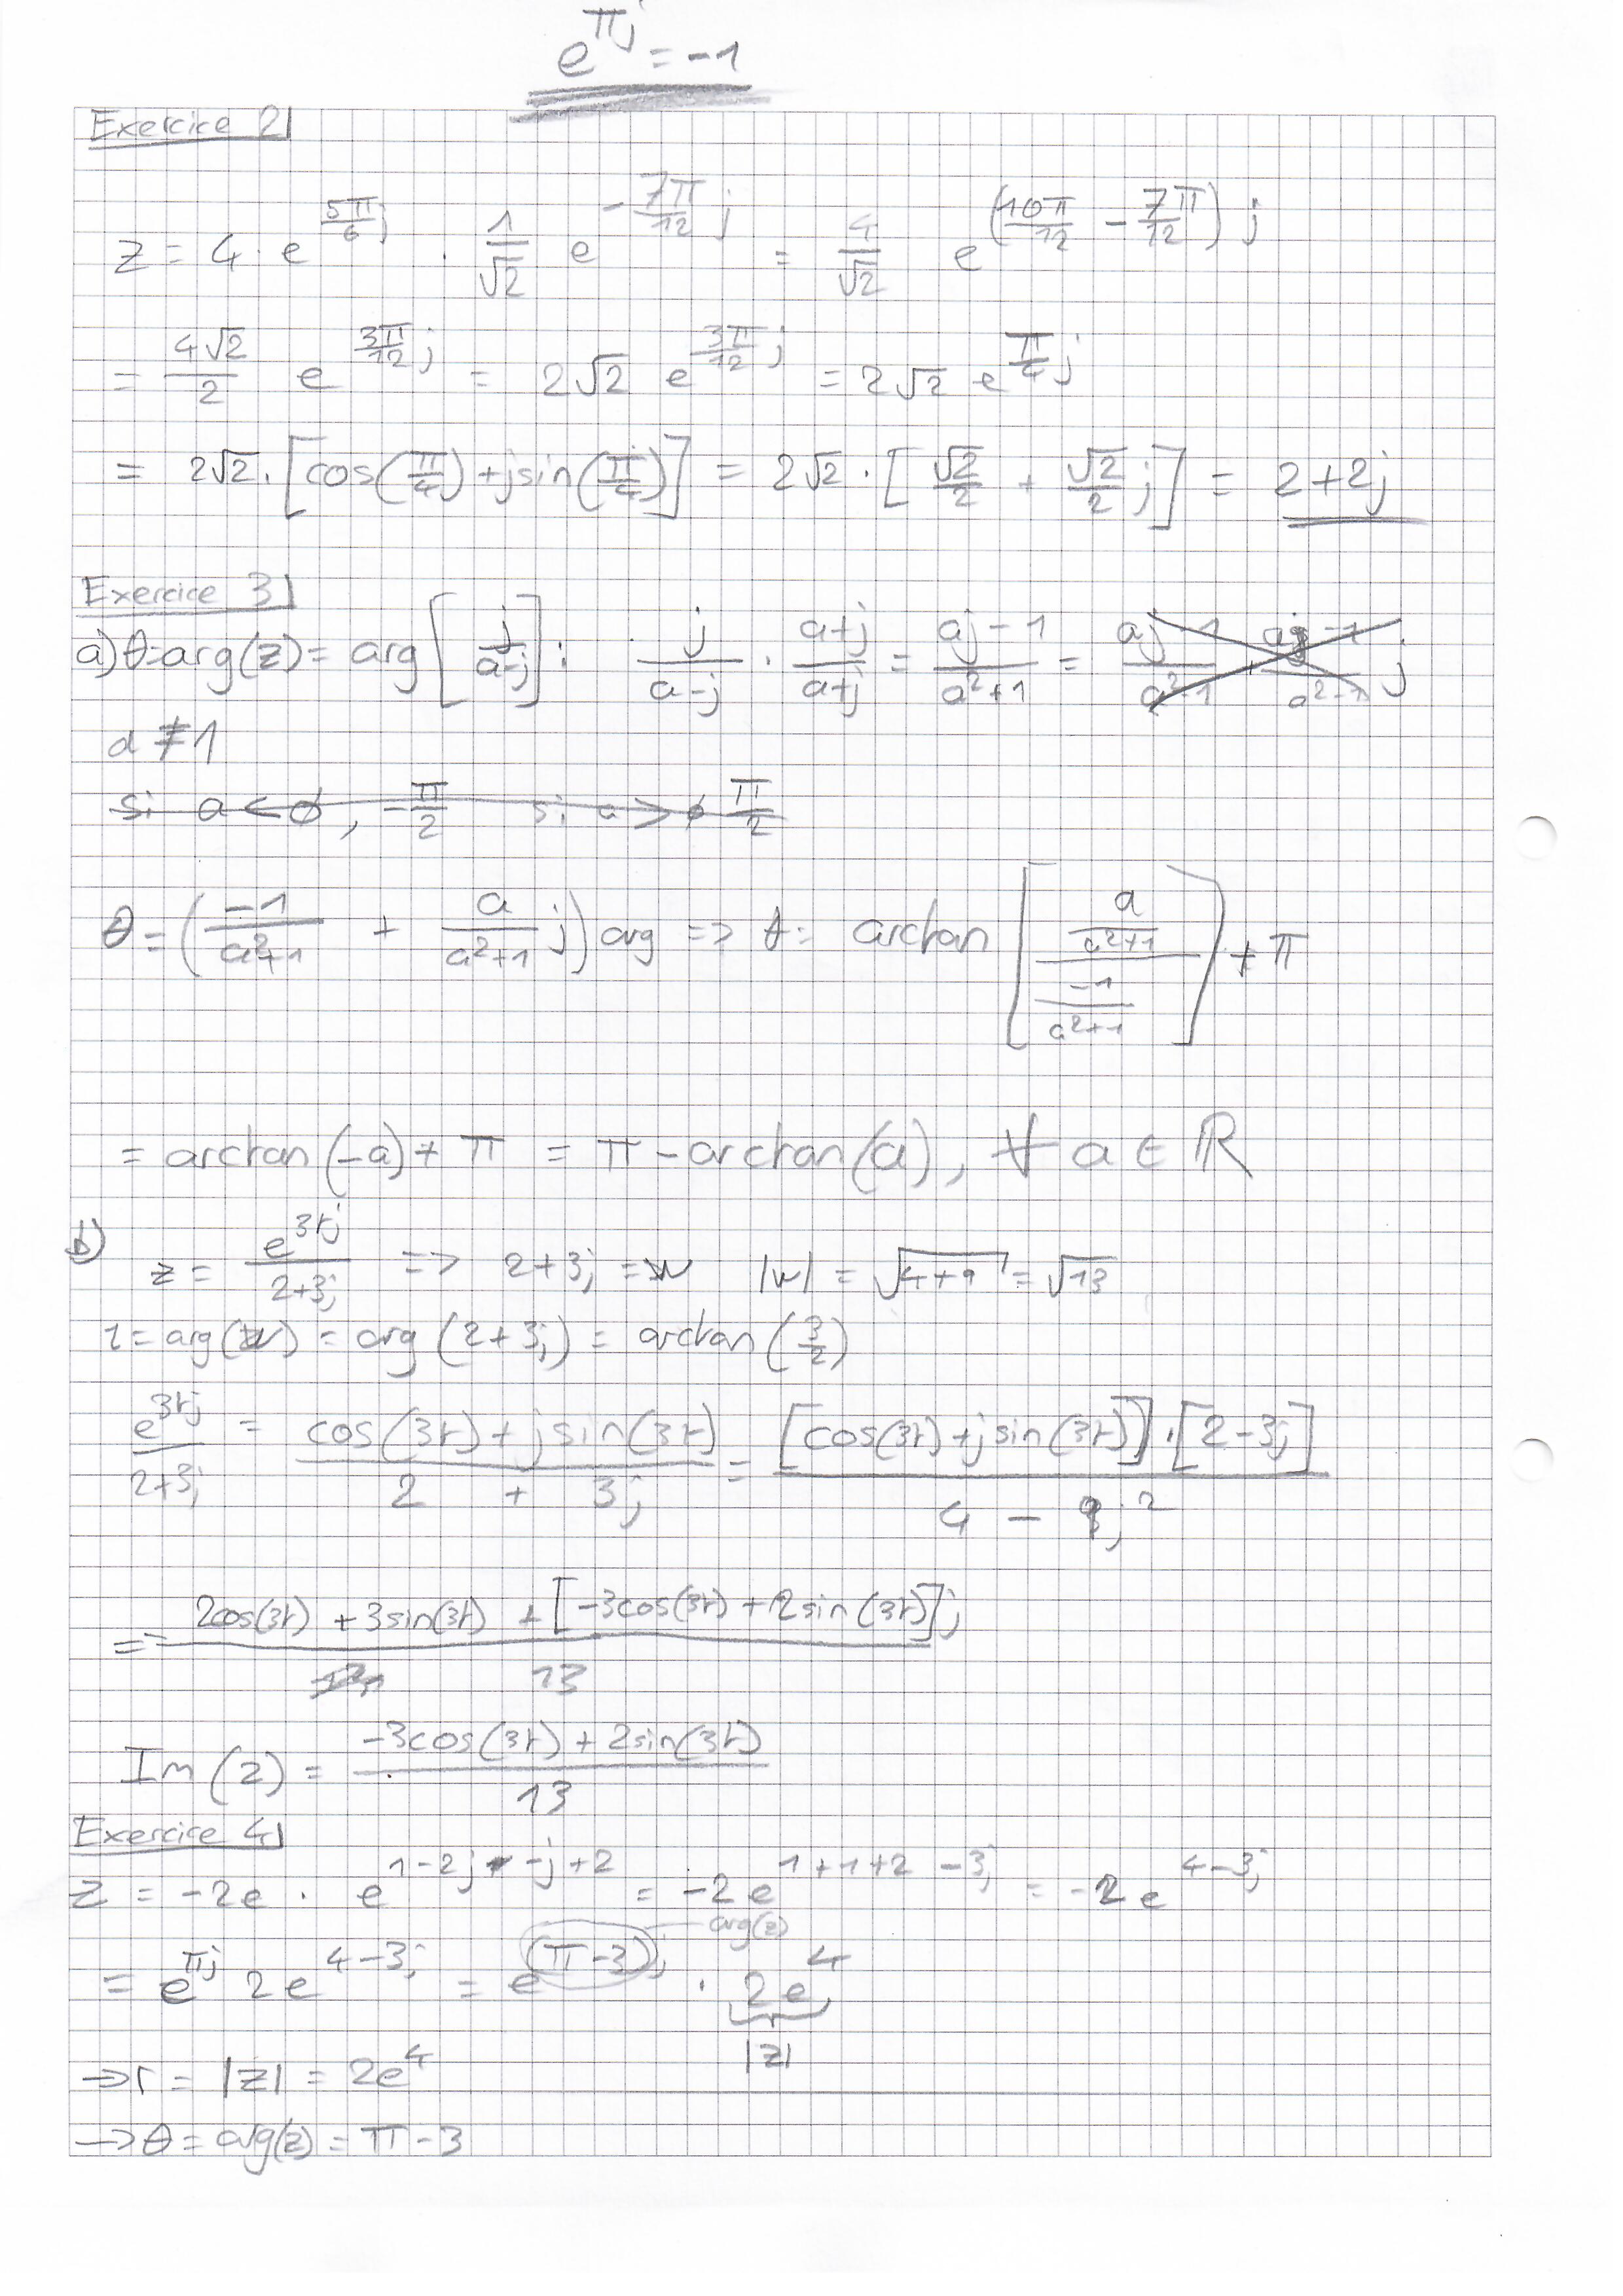 e^{πj} = -1
Exercice 2
z = 4 · e^{5π/6 j} · 1/√2 e^{-7π/12 j} = 4/√2 e^{(10π/12 - 7π/12) j}
= 4√2/2 e^{3π/12 j} = 2√2 e^{3π/12 j} = 2√2 e^{π/4 j}
= 2√2 · [cos(π/4) + jsin(π/4)] = 2√2 · [√2/2 + √2/2 j] = 2+2j
Exercice 3
a) θ = arg(z) = arg[j/(a-j)] : j/(a-j) · (a+j)/(a+j) = (aj-1)/(a²+1) =
a ≠ 1
si a < ø, -π/2 si a > ø π/2
θ = (-1/(a²+1) + a/(a²+1) j) arg => θ = arctan[(a/(a²+1))/(-1/(a²+1))] + π
= arctan(-a) + π = π - arctan(a), ∀ a ∈ ℝ
b) z = e^{3tj}/(2+3j) => 2+3j = w |w| = √(4+9) = √13
= arg(w) = arg(2+3j) = arctan(3/2)
e^{3tj}/(2+3j) = (cos(3t) + jsin(3t))/(2 + 3j) = ([cos(3t) + jsin(3t)] · [2-3j])/(4 - 9j²)
= (2cos(3t) + 3sin(3t) + [-3cos(3t) + 2sin(3t)]j)/13
Im(z) = (-3cos(3t) + 2sin(3t))/13
Exercice 4
z = -2e · e^{1-2j-j+2} = -2e^{1+1+2-3j} = -2e^{4-3j}
arg(z)
= e^{πj} 2e^{4-3j} = e^{(π-3)j} · 2e^4
|z|
→ r = |z| = 2e^4
→ θ = arg(z) = π - 3